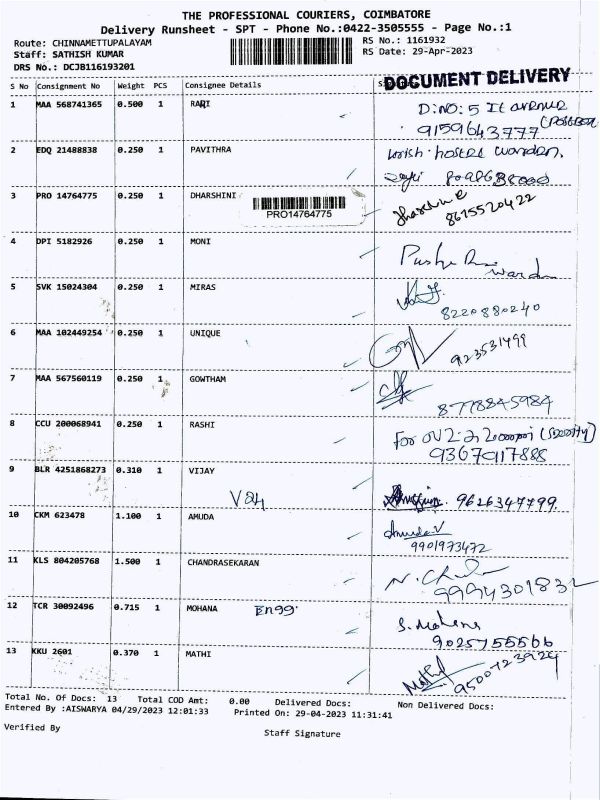 THE PROFESSIONAL COURIERS, COIMBATORE
Delivery Runsheet - SPT - Phone No.:0422-3505555 - Page No.:1
Route: CHINNAMETTUPALAYAM RS No.: 1161932
Staff: SATHISH KUMAR RS Date: 29-Apr-2023
DRS No.: DCJB116193201
DOCUMENT DELIVERY
S No Consignment No Weight PCS Consignee Details
1 MAA 568741365 0.500 1 RARI D:NO: 5 avenue
9159643777
2 EDQ 21488838 0.250 1 PAVITHRA hostel warden.
3 PRO 14764775 0.250 1 DHARSHINI
PRO14764775
8675520422
4 DPI 5182926 0.250 1 MONI
warden
5 SVK 15024304 0.250 1 MIRAS
8220880240
6 MAA 102449254 0.250 1 UNIQUE
7 MAA 567560119 0.250 1 GOWTHAM
8778845984
8 CCU 200068941 0.250 1 RASHI For
9367917885
9 BLR 4251868273 0.310 1 VIJAY
9626347799.
10 CKM 623478 1.100 1 AMUDA Amuda V
9901973472
11 KLS 804205768 1.500 1 CHANDRASEKARAN
9994301832
12 TCR 30092496 0.715 1 MOHANA Engg. S. Mohana
9025755566
13 KKU 2601 0.370 1 MATHI Mathi
9500723924
Total No. Of Docs: 13 Total COD Amt: 0.00 Delivered Docs: Non Delivered Docs:
Entered By :AISWARYA 04/29/2023 12:01:33 Printed On: 29-04-2023 11:31:41
Verified By
Staff Signature